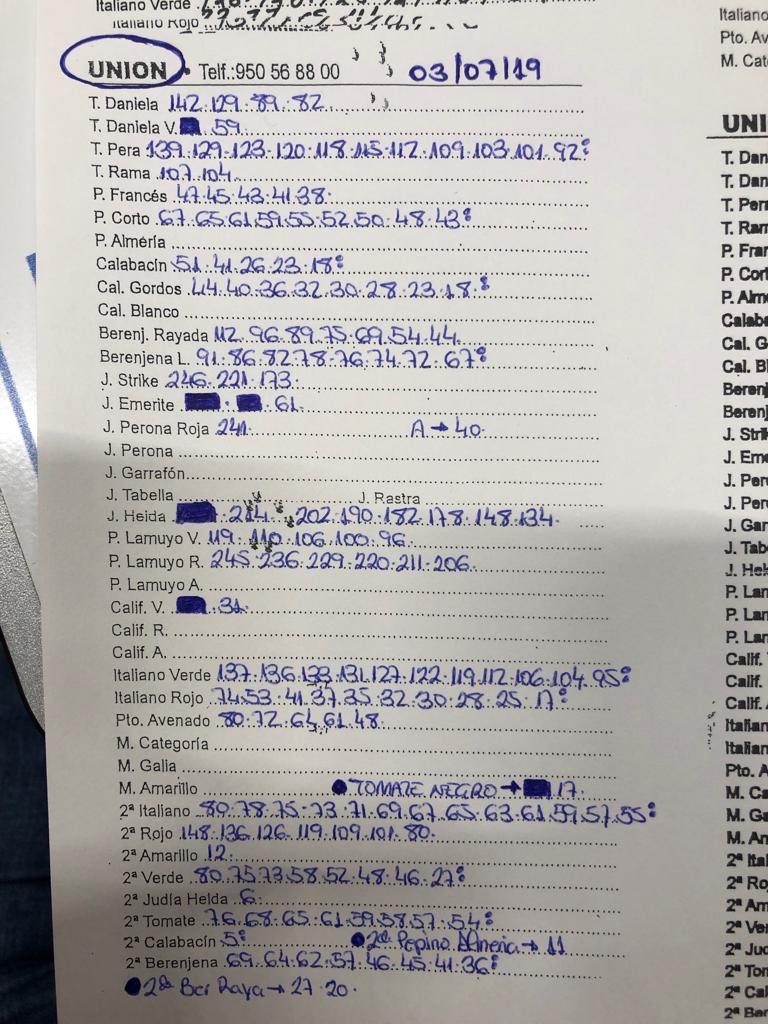 Italiano Verde
Italiano Rojo
UNION • Telf.:950 56 88 00 03/07/19
T. Daniela 142.129.89.82
T. Daniela V. 59
T. Pera 139.129.123.120.118.115.112.109.103.101.92:
T. Rama 107.104
P. Francés 47.45.43.41.38.
P. Corto 67.65.61.59.55.52.50.48.43:
P. Alméria
Calabacín 51.41.26.23.18:
Cal. Gordos 44.40.36.32.30.28.23.18:
Cal. Blanco
Berenj. Rayada 112.96.89.75.69.54.44.
Berenjena L. 91.86.82.78.76.74.72.67:
J. Strike 246.221.173.
J. Emerite 61.
J. Perona Roja 241. A→40.
J. Perona
J. Garrafón
J. Tabella J. Rastra
J. Helda 214. 202.190.182.178.148.134.
P. Lamuyo V. 119.110.106.100.96.
P. Lamuyo R. 245.236.229.220.211.206.
P. Lamuyo A.
Calif. V. 31.
Calif. R.
Calif. A.
Italiano Verde 137.136.133.131.127.122.119.112.106.104.95:
Italiano Rojo 74.53.41.37.35.32.30.28.25.17:
Pto. Avenado 80.72.64.61.48.
M. Categoría
M. Galia
M. Amarillo • TOMATE NEGRO → 17.
2ª Italiano 80.78.75.73.71.69.67.65.63.61.59.57.55:
2ª Rojo 148.136.126.119.109.101.80.
2ª Amarillo 12.
2ª Verde 80.75.73.58.52.48.46.27:
2ª Judía Helda 6.
2ª Tomate 76.68.65.61.59.58.57.54:
2ª Calabacín 5: • 2ª Pepino Almeria → 11
2ª Berenjena 69.64.62.57.46.45.41.36:
• 2ª Ber Raya → 27.20.
Italiano
Pto. Av
M. Cat
UNI
T. Dan
T. Dan
T. Per
T. Ram
P. Fra
P. Cort
P. Alm
Calaba
Cal. G
Cal. Bl
Berenj
Berenj
J. Stri
J. Eme
J. Per
J. Per
J. Gar
J. Tab
J. Hel
P. Lan
P. Lan
P. Lan
Calif.
Calif.
Calif.
Italian
Italian
Pto. A
M. Ca
M. Ga
M. An
2ª Ital
2ª Ro
2ª Am
2ª Ve
2ª Juc
2ª Ton
2ª Cal
2ª Ber